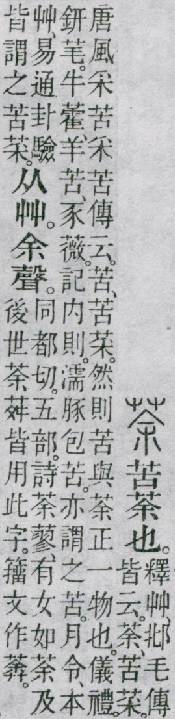 荼 苦荼也。
釋艸、邶毛傳
皆云。荼、苦菜。
唐風采苦采苦傳云。苦、苦菜。然則苦與荼正一物也。儀禮
鈃芼。牛藿羊苦豕薇。記內則。濡豚包苦。亦謂之苦。月令、本
艸、易通卦驗
皆謂之苦菜。
从艸。余聲。
同都切。五部。詩荼蓼、有女如荼及
後世荼荈皆用此字。籒文作